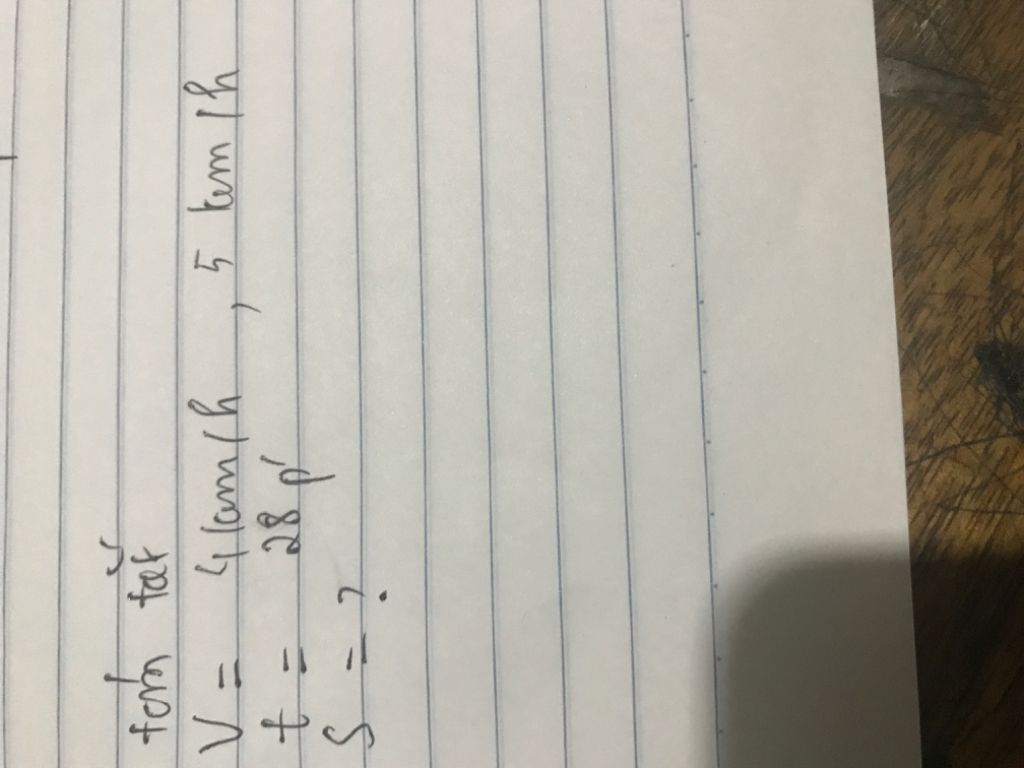 tóm tắt
V = 4km/h , 5 km/h
t = 28 p'
S = ?